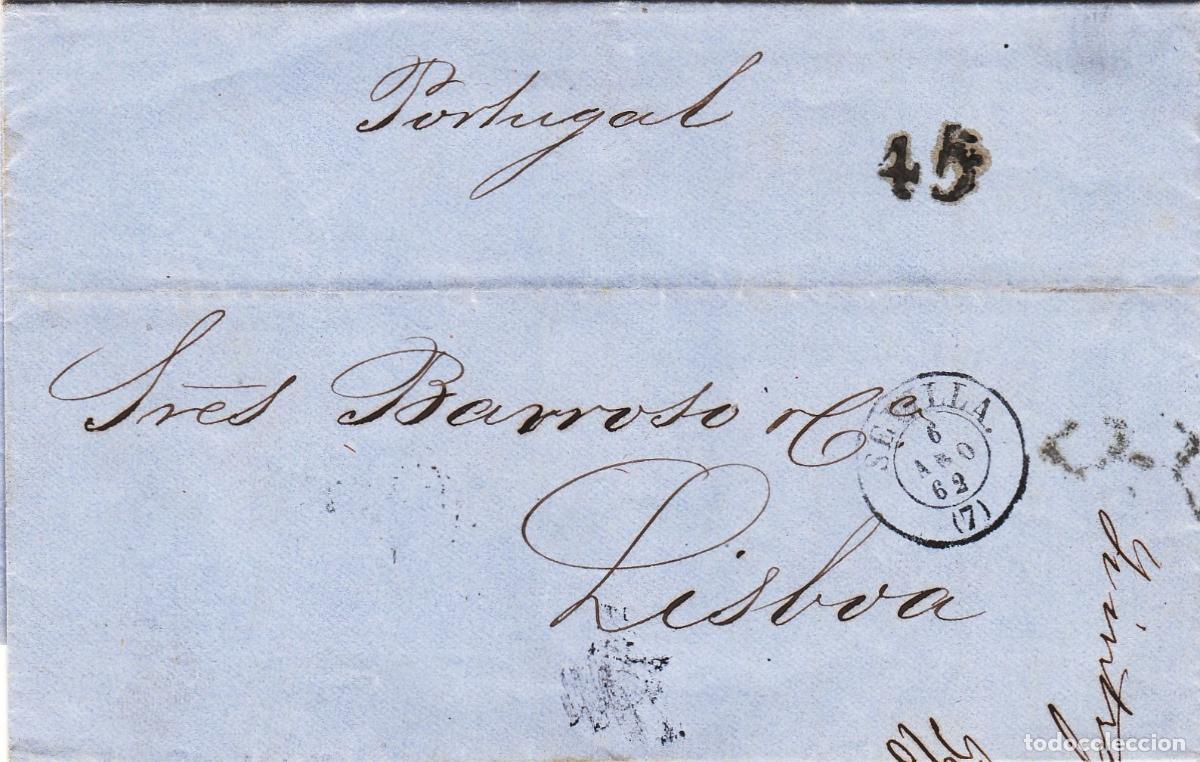 Portugal
45
Srēs Barroso & Cª
SEVILLA.
6
AGO
62
(7)
Lisboa
todocoleccion